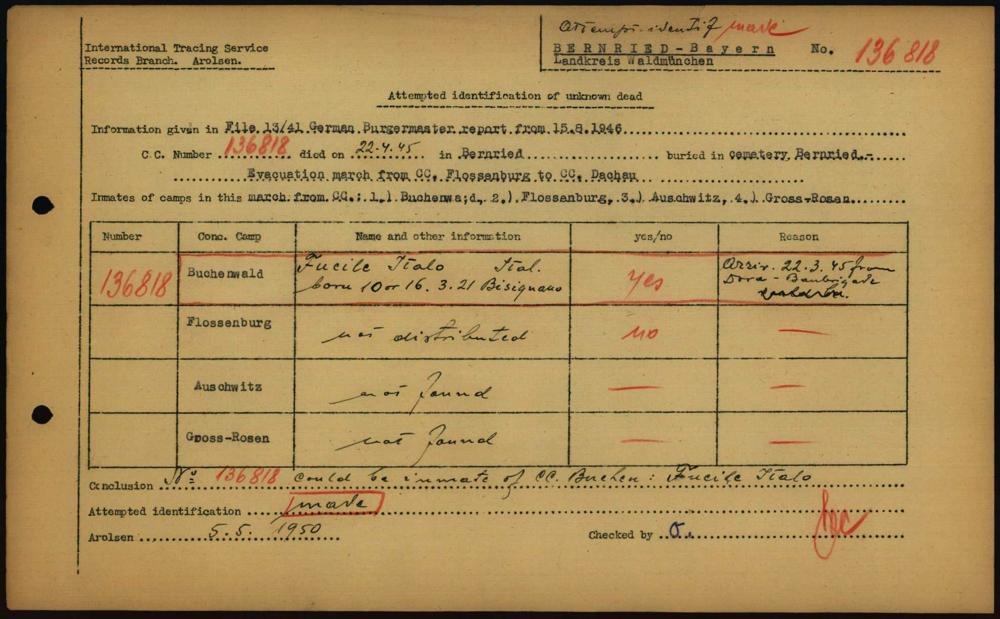 Attempt. identif made
International Tracing Service
Records Branch. Arolsen.
BERNRIED-Bayern No. 136818
Landkreis Waldmünchen
Attempted identification of unknown dead
Information given in File 13/41 German Burgermaster report from 15.8.1946
C.C. Number 136818 died on 22.4.45 in Bernried buried in cemetery Bernried.-
Evacuation march from CC. Flossenburg to CC. Dachau
Inmates of camps in this march from CC.: 1.) Buchenwa;d, 2.) Flossenburg, 3.) Auschwitz, 4.) Gross-Rosen
Number Conc. Camp Name and other information yes/no Reason
136818 Buchenwald Fucile Italo Ital. born 10 or 16. 3. 21 Bisignano yes Arriv. 22.3.45 from Dora - Baubrigade
Flossenburg not distributed no —
Auschwitz not found — —
Gross-Rosen not found — —
Conclusion No 136818 could be inmate of CC. Buchen: Fucile Italo
Attempted identification made
Arolsen 5.5. 1950 Checked by O.